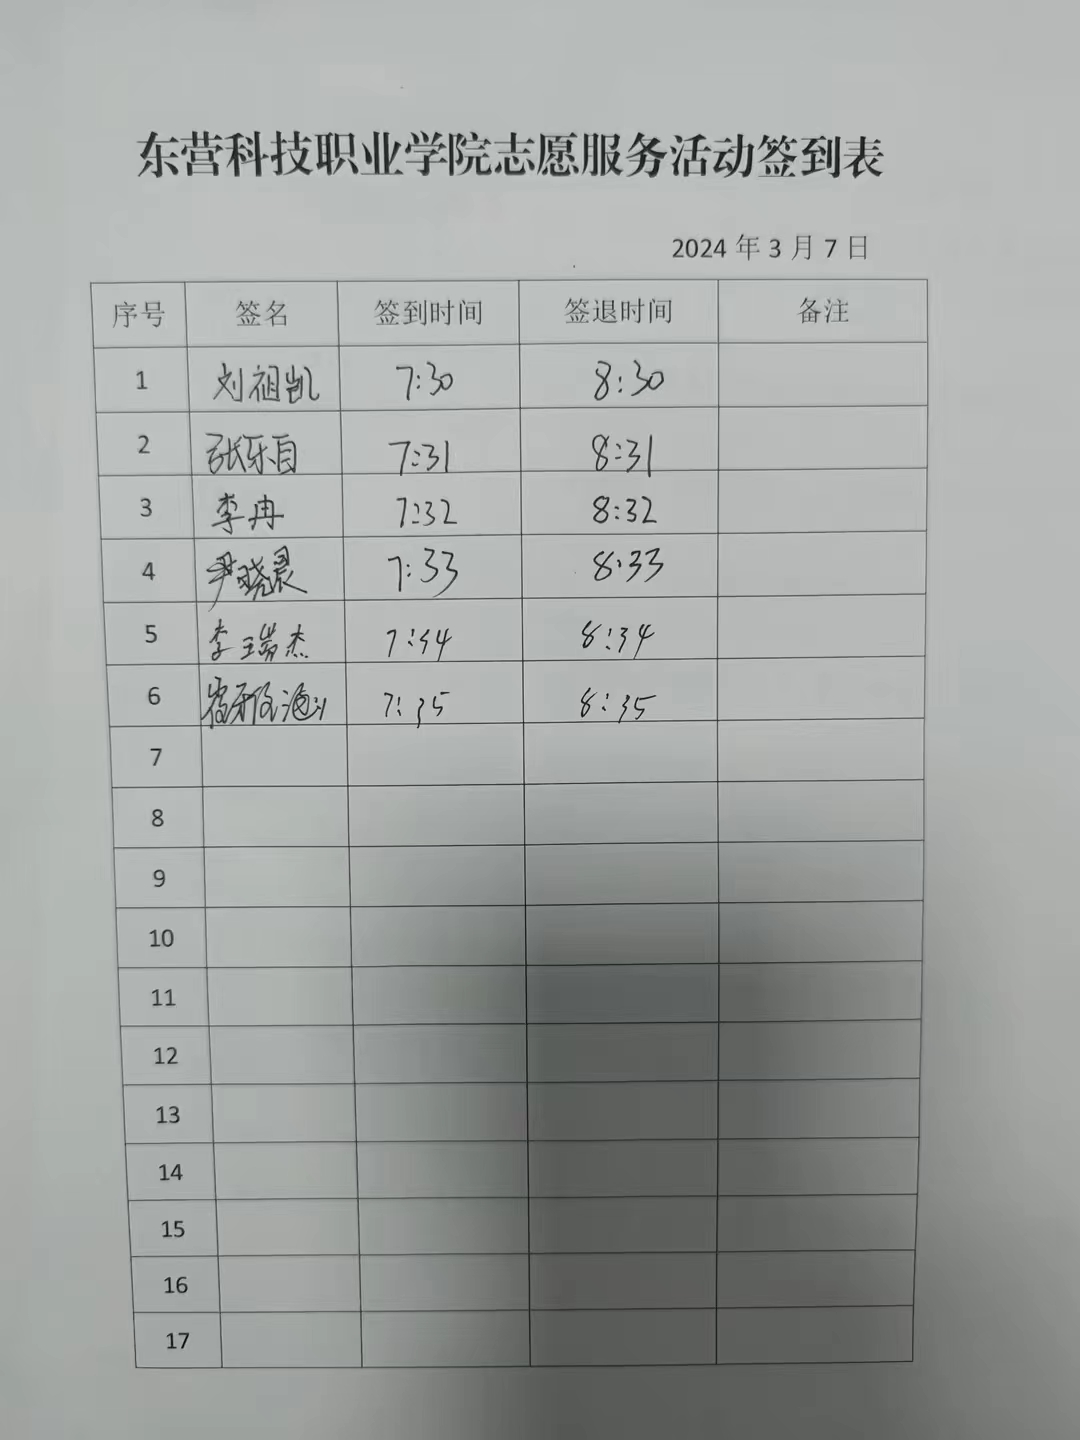 东营科技职业学院志愿服务活动签到表
2024 年 3 月 7 日
序号 签名 签到时间 签退时间 备注
1 刘祖凯 7:30 8:30
2 张乐自 7:31 8:31
3 李冉 7:32 8:32
4 尹晓晨 7:33 8:33
5 李瑞杰 7:34 8:34
6 7:35 8:35
7
8
9
10
11
12
13
14
15
16
17